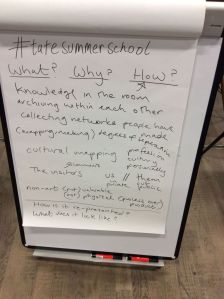 #tatesummerschool
What? Why? How?
Knowledge in the room
archiving within each other
collecting networks people have
(mapping/making) degrees of
cultural mapping
The visitors us // them
private public
non-arts (not) valuable
(not) physical (process over
product)
How is it re-presented?
What does it look like?